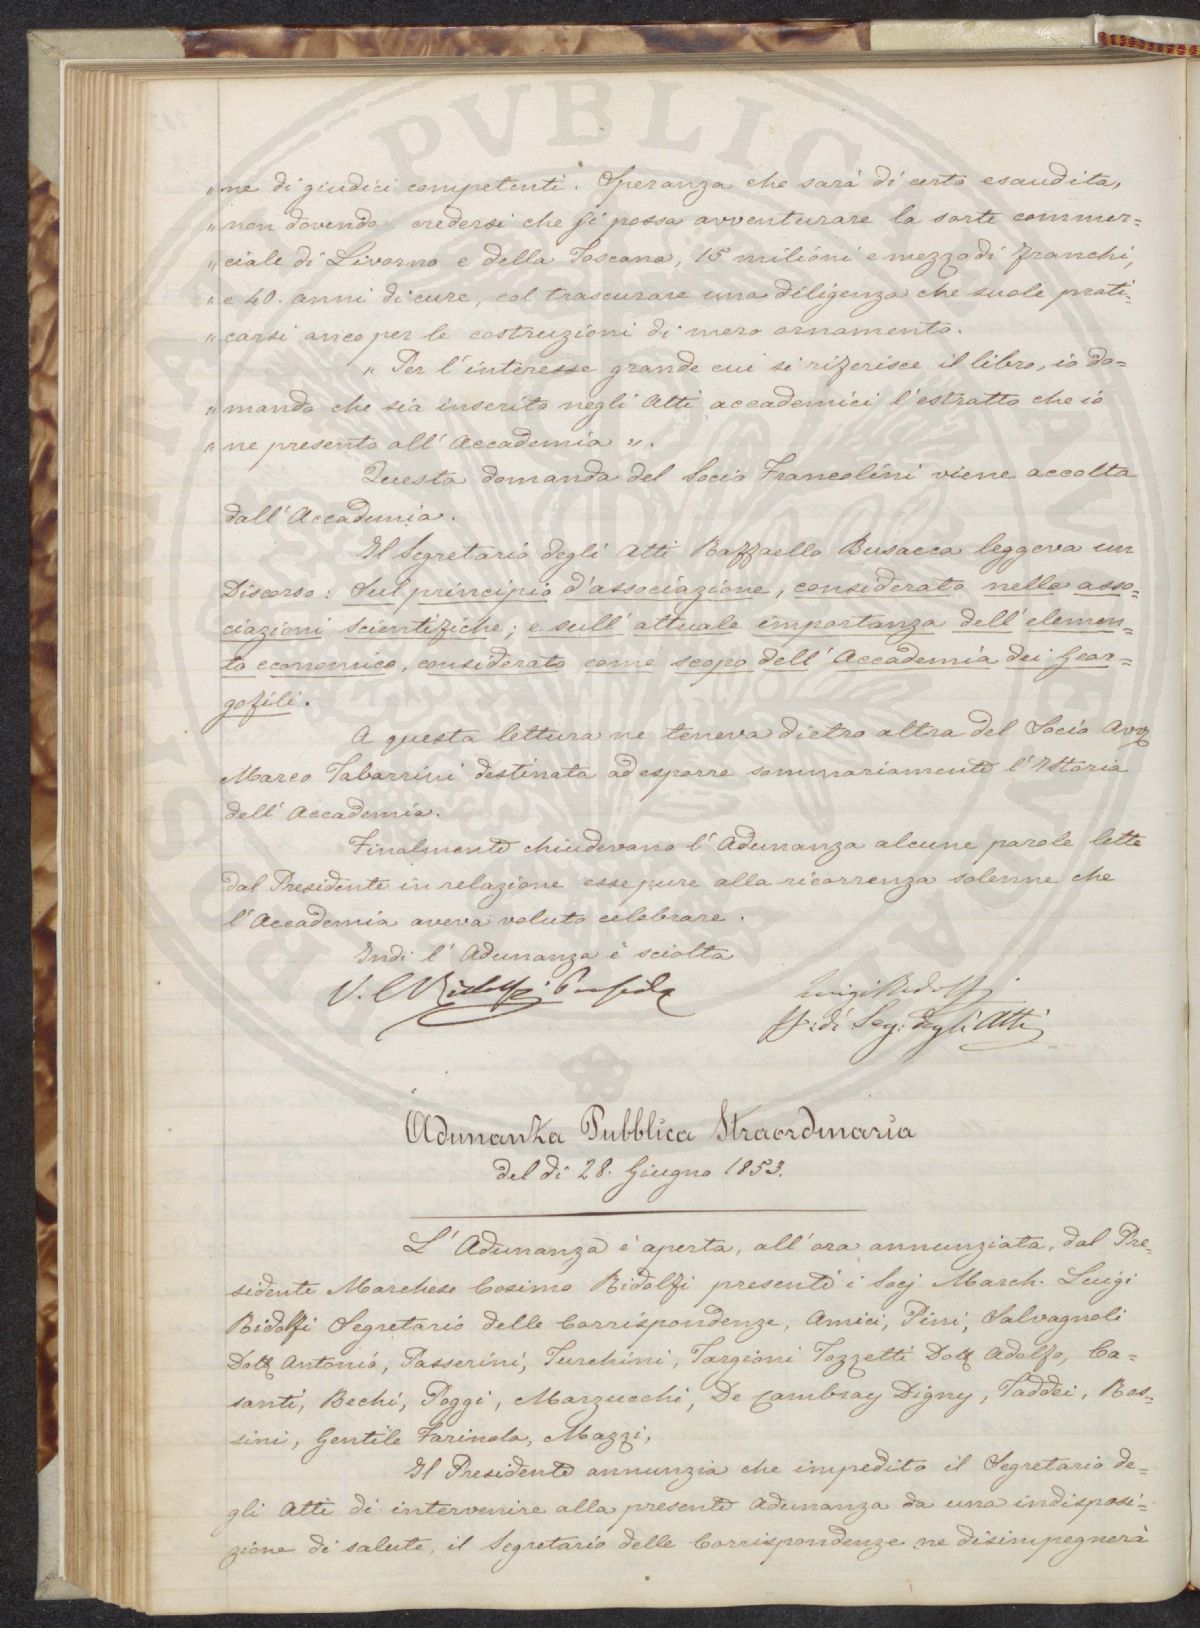 PVBLICA
„ ne di giudici competenti. Speranza che sarà di certo esaudita,
„ non dovendo credersi che si possa avventurare la sorte commer=
„ ciale di Livorno e della Toscana, 15 milioni e mezzo di franchi,
„ e 40. anni di cure, col trascurare una diligenza che suole prati=
„ carsi anco per le costruzioni di mero ornamento.
„ Per l'interesse grande cui si riferisce il libro, io do=
„ mando che sia inserito negli Atti accademici l'estratto che io
„ ne presento all'Accademia „.
Questa domanda del Socio Francolini viene accolta
dall'Accademia.
Il Segretario degli Atti Raffaello Busacca leggeva un
Discorso: Sul principio d'associazione, considerato nelle asso=
ciazioni scientifiche; e sull'attuale importanza dell'elemen=
to economico, considerato come scopo dell'Accademia dei Geor=
gofili.
A questa lettura ne teneva dietro altra del Socio Avv.
Marco Tabarrini destinata ad esporre sommariamente l'Istoria
dell'Accademia.
Finalmente chiudevano l'Adunanza alcune parole lette
dal Presidente in relazione esse pure alla ricorrenza solenne che
l'Accademia aveva voluto celebrare.
Indi l'Adunanza è sciolta
V. C Ridolfi
Luigi Ridolfi
ff: di Seg: degli Atti
Adunanza Pubblica Straordinaria
del dì 28. Giugno 1853.
L'Adunanza è aperta, all'ora annunziata, dal Pre=
sidente Marchese Cosimo Ridolfi presenti i Socj March. Luigi
Ridolfi Segretario delle Corrispondenze, Amici, Pini, Salvagnoli
Dott. Antonio, Passerini, Turchini, Targioni Tozzetti Dott. Adolfo, Ca=
santi, Bechi, Poggi, Marzucchi, De Cambray Digny, Taddei, Ros=
sini, Gentile Farinola, Mazzi,
Il Presidente annunzia che impedito il Segretario de=
gli Atti di intervenire alla presente Adunanza da una indisposi=
zione di salute, il Segretario delle Corrispondenze ne disimpegnerà